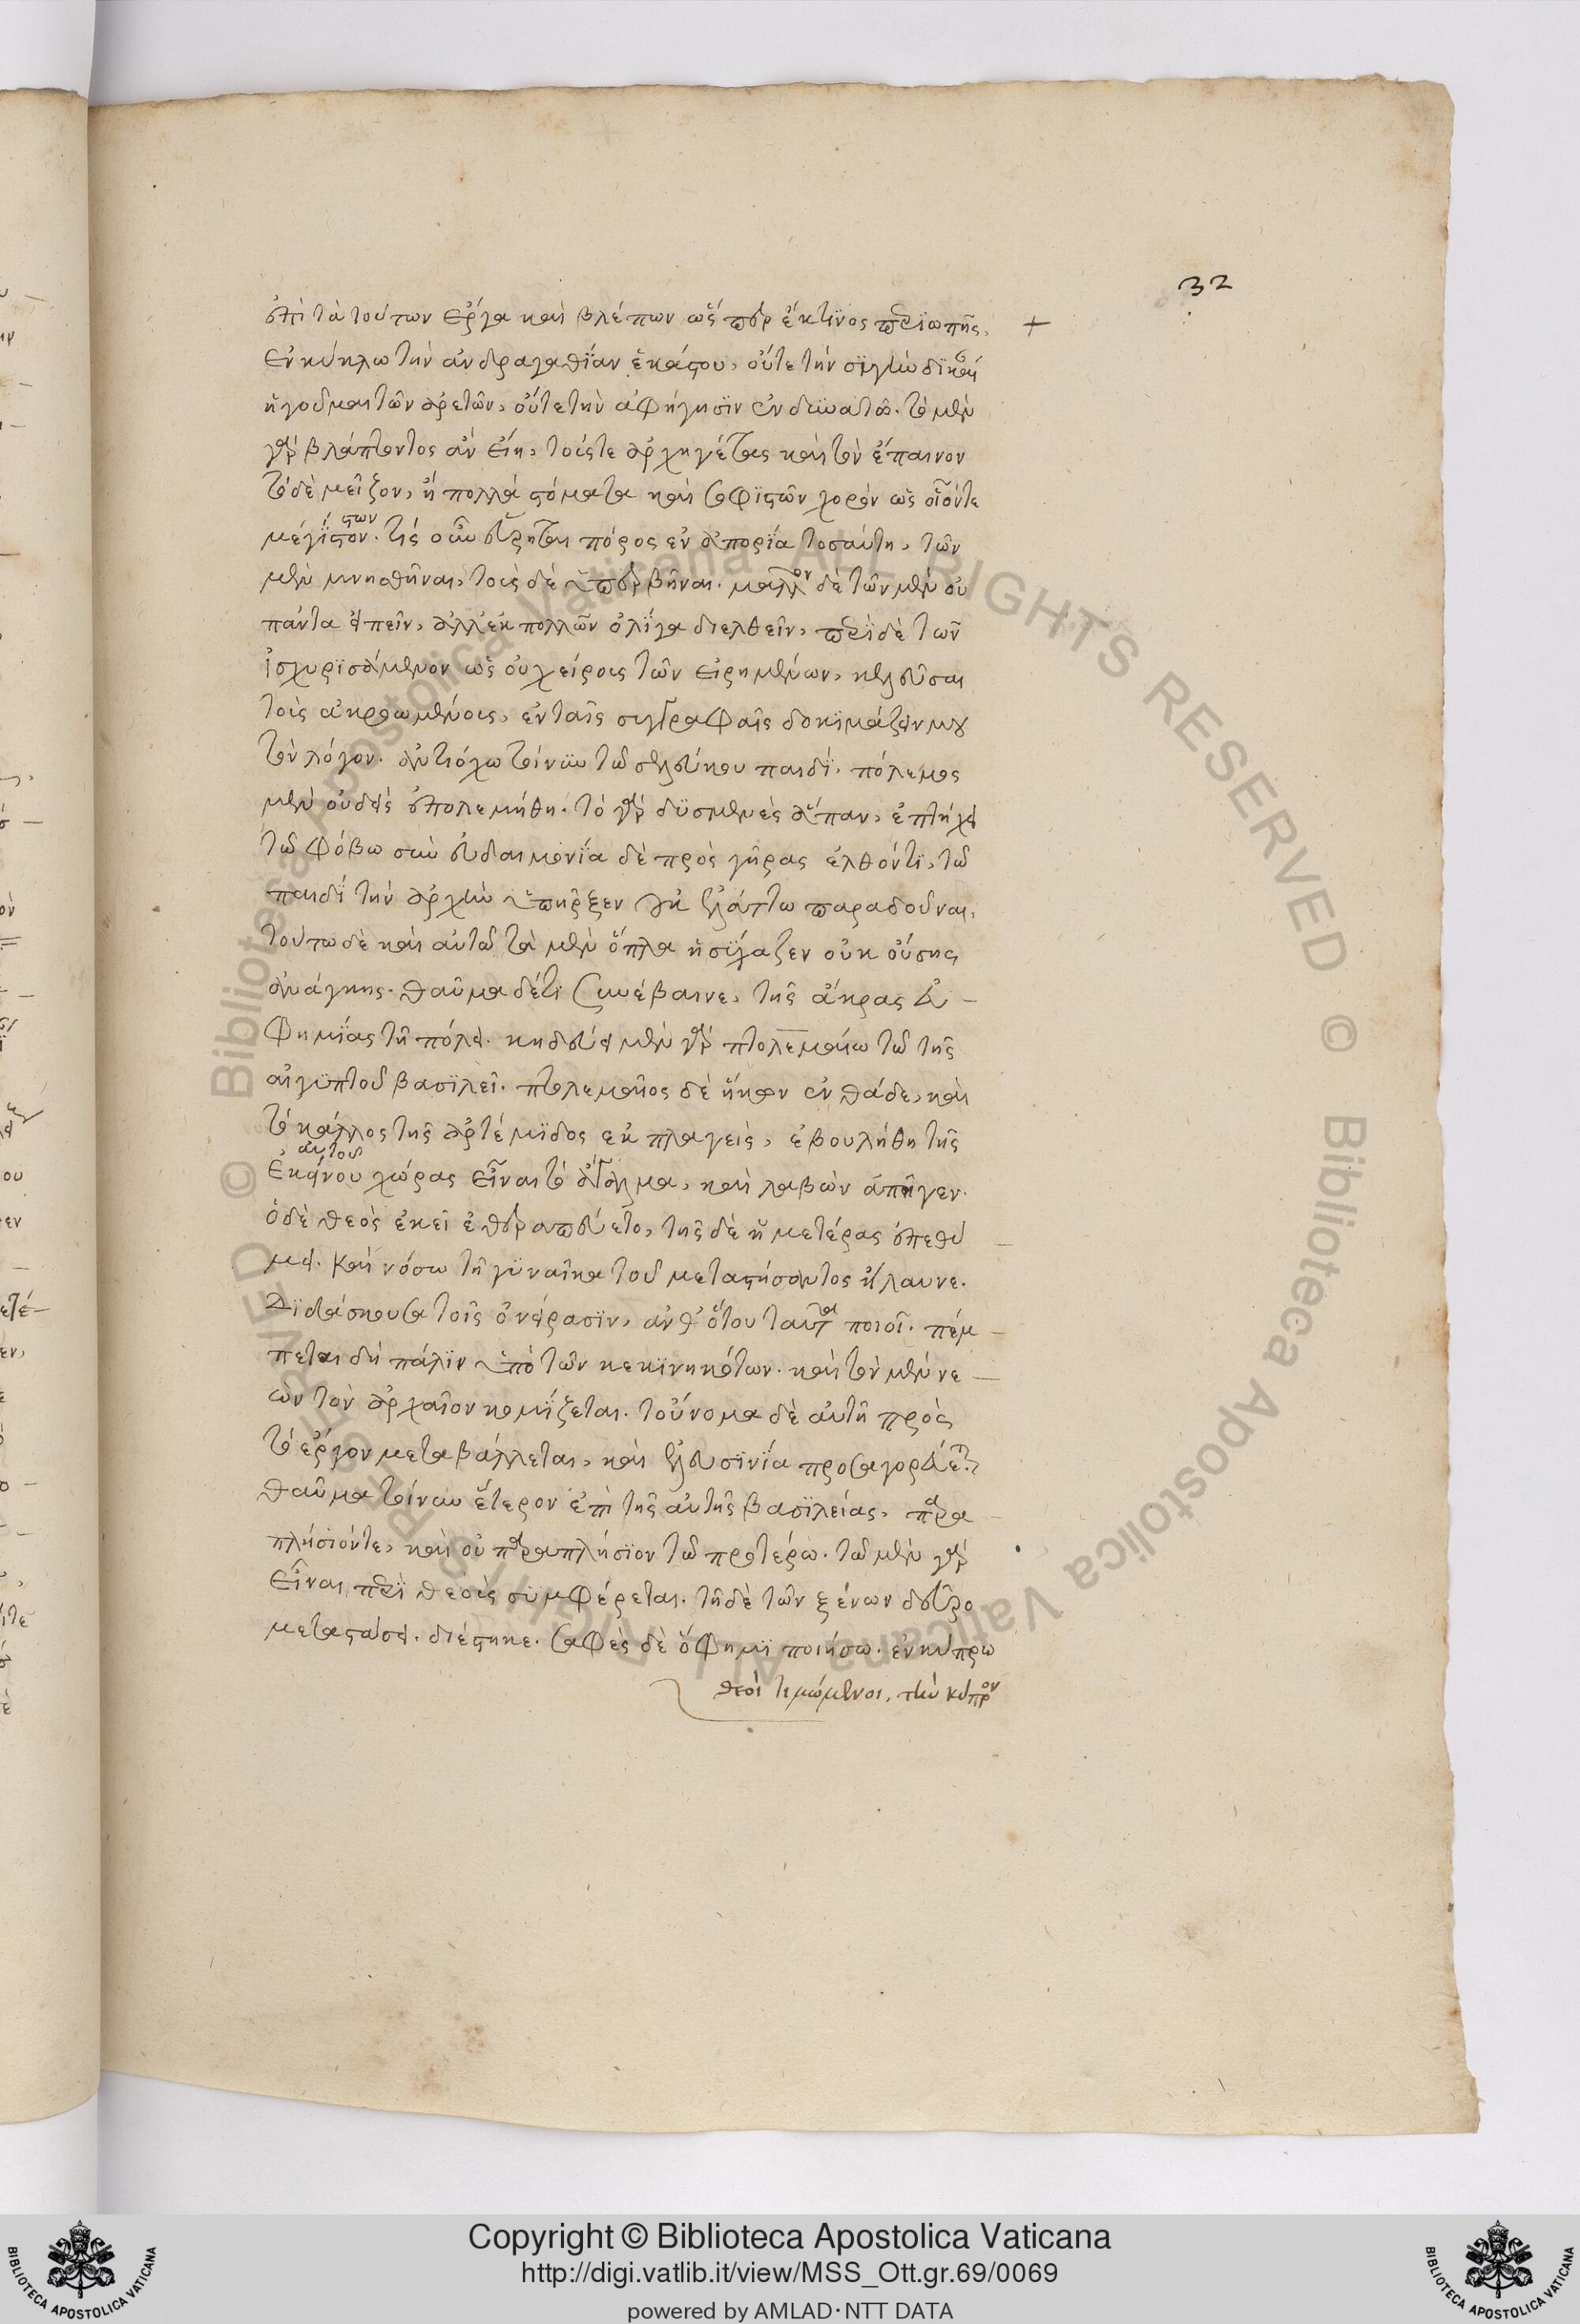 32
ἐπὶ τὰ τούτων ἔργα καὶ βλέπων ὥσπερ ἔκ τινος περιωπῆς, +
ἐν κύκλω τὴν ἀνδραγαθίαν ἑκάστου, οὔτε τὴν σιγὴν δικαίαν
ἡγοῦμαι τῶν ἀρετῶν, οὔτε τὴν ἀφήγησιν ἐν δυνατῶ. τὸ μὲν
γὰρ βλάπτοντος ἂν εἴη, τούς τε ἀρχηγέτας καὶ τὸν ἔπαινον
τὸ δὲ μεῖζον, ἢ πολλὰ στόματα καὶ σοφιστῶν χορὸν ὡς οἷόν τε
μέγιστον. τίς οὖν εὕρηται πόρος ἐν ἀπορία τοσαύτη, τῶν
στων
μὲν μνησθῆναι, τοὺς δὲ ὑπερβῆναι. μᾶλλον δὲ τῶν μὲν οὐ
πάντα εἰπεῖν, ἀλλ' ἐκ πολλῶν ὀλίγα διελθεῖν, περὶ δὲ τῶν
ἰσχυρισάμενον ὡς οὐ χείρους τῶν εἰρημένων, κελεῦσαι
τοὺς ἀκροωμένους, ἐν ταῖς συγγραφαῖς δοκιμάζειν μου
τὸν λόγον. ἀντιόχω τοίνυν τῶ σελεύκου παιδὶ, πόλεμος
μὲν οὐδεὶς ἐπολεμήθη. τὸ γὰρ δυσμενὲς ἅπαν, ἐπτήχει
τῶ φόβω σὺν εὐδαιμονία δὲ πρὸς γῆρας ἐλθόντι, τῶ
παιδὶ τὴν ἀρχὴν ὑπῆρξεν οὐκ ἐλάττω παραδοῦναι,
τούτω δὲ καὶ αὐτῶ τὰ μὲν ὅπλα ἡσύχαζεν οὐκ οὔσης
ἀνάγκης. θαῦμα δέ τι συνέβαινε, τῆς ἄκρας εὐ –
φημίας τῆ πόλει. κηδεύει μὲν γὰρ πτολεμαίω τῶ τῆς
αἰγύπτου βασιλεῖ. πτολεμαῖος δὲ ἥκων ἐνθάδε, καὶ
τὸ κάλλος τῆς ἀρτέμιδος ἐκπλαγεὶς, ἐβουλήθη τῆς
αὐτοῦ
ἐκείνου χώρας εἶναι τὸ ἄγαλμα, καὶ λαβὼν ἀπῆγεν.
ὁ δὲ θεὸς ἐκεῖ ἐθεραπεύετο, τῆς δὲ ἡμετέρας ἐπεθύ –
μει. καὶ νόσω τὴν γυναῖκα τοῦ μεταστήσαντος ἤλαυνε.
διδάσκουσα τοῖς ὀνείρασιν, ἀνθ' ὅτου ταῦτα ποιοῖ. πέμ –
πεται δὴ πάλιν ὑπὸ τῶν κεκινηκότων. καὶ τὸν μὲν νε –
ὼν τὸν ἀρχαῖον κομίζεται. τοὔνομα δὲ αὐτῆ πρὸς
τὸ ἔργον μεταβάλλεται, καὶ ἐλευσινία προσαγορεύεται,
θαῦμα τοίνυν ἕτερον ἐπὶ τῆς αὐτῆς βασιλείας, παρα
πλήσιόν τε, καὶ οὐ παραπλήσιον τῶ προτέρω. τῶ μὲν γὰρ
εἶναι περὶ θεοὺς συμφέρεται. τῆ δὲ τῶν ξένων δεῦρο
μεταστάσει. διέστηκε. σαφὲς δὲ ὅ φημι ποιήσω. ἐν κύπρω
θεοὶ τιμώμενοι, τὴν κύπρον
Copyright © Biblioteca Apostolica Vaticana
http://digi.vatlib.it/view/MSS_Ott.gr.69/0069
powered by AMLAD·NTT DATA
BIBLIOTECA APOSTOLICA VATICANA
BIBLIOTECA APOSTOLICA VATICANA
© Biblioteca Apostolica Vaticana ALL RIGHTS RESERVED © Biblioteca Apostolica Vaticana ALL RIGHTS RESERVED